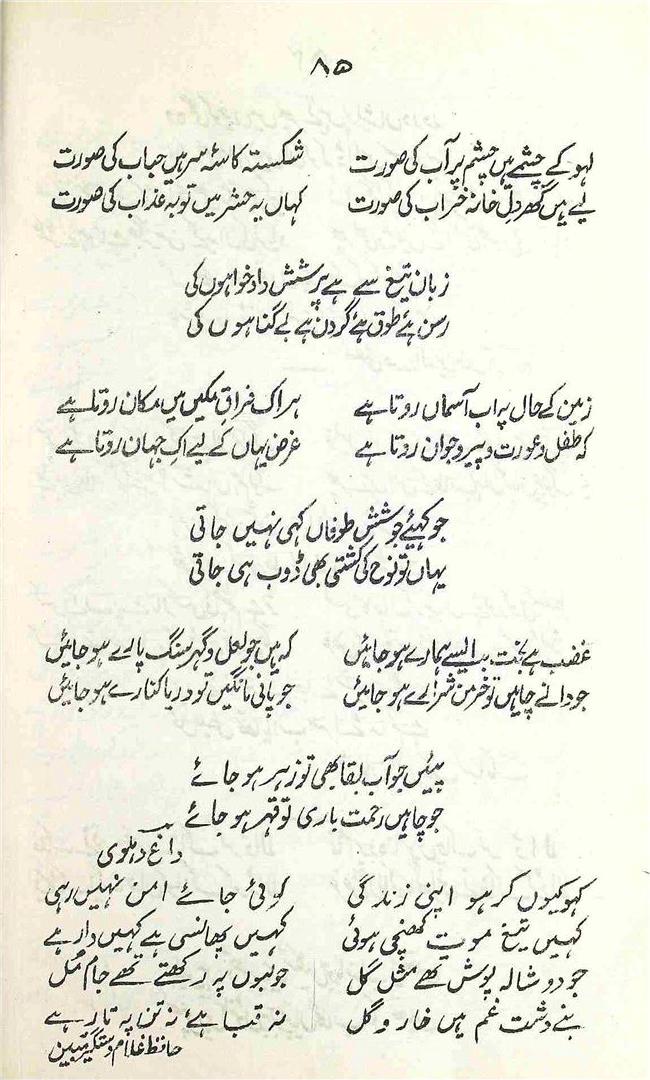 ۸۵
لہو کے چشمے ہیں چشمِ پر آب کی صورت شکستہ کاسۂ سر ہیں حباب کی صورت
لٹے ہیں گھر دلِ خانہ خراب کی صورت کہاں یہ حشر میں توبہ عذاب کی صورت
زبان تیغ سے ہے پرسشش داد خواہوں کی
رسن ہے طوق ہے گردن ہے بے گناہوں کی
زمین کے حال پہ اب آسماں روتا ہے ہر اک فراقِ مکیں میں مکان روتا ہے
کہ طفل و عورت و پیر و جوان روتا ہے غرض یہاں کے لیے اک جہان روتا ہے
جو کہیئے جوششِ طوفاں کہی نہیں جاتی
یہاں تو نوح کی کشتی بھی ڈوب ہی جاتی
غضب ہے بخت بد ایسے ہمارے ہو جائیں کہ ہیں جو لعل و گہر سنگ پارے ہو جائیں
جو دانے چاہیں تو خرمن شرارے ہو جائیں جو پانی مانگیں تو دریا کنارے ہو جائیں
پیئیں جو آب بقا بھی تو زہر ہو جائے
جو چاہیں رحمت باری تو قہر ہو جائے
داغ دہلوی
کہو کیوں کر ہو اپنی زندگی کوئی جائے امن نہیں رہی
کہیں تیغ موت کھنچی ہوئی کہیں پھانسی ہے کہیں دار ہے
جو دو شالہ پوش تھے مثل گل جو لبوں پہ رکھتے تھے جام مُل
بنے دشت غم میں خار و گل نہ قبا ہے نہ تن پہ تار ہے
حافظ غلام دستگیر مبین